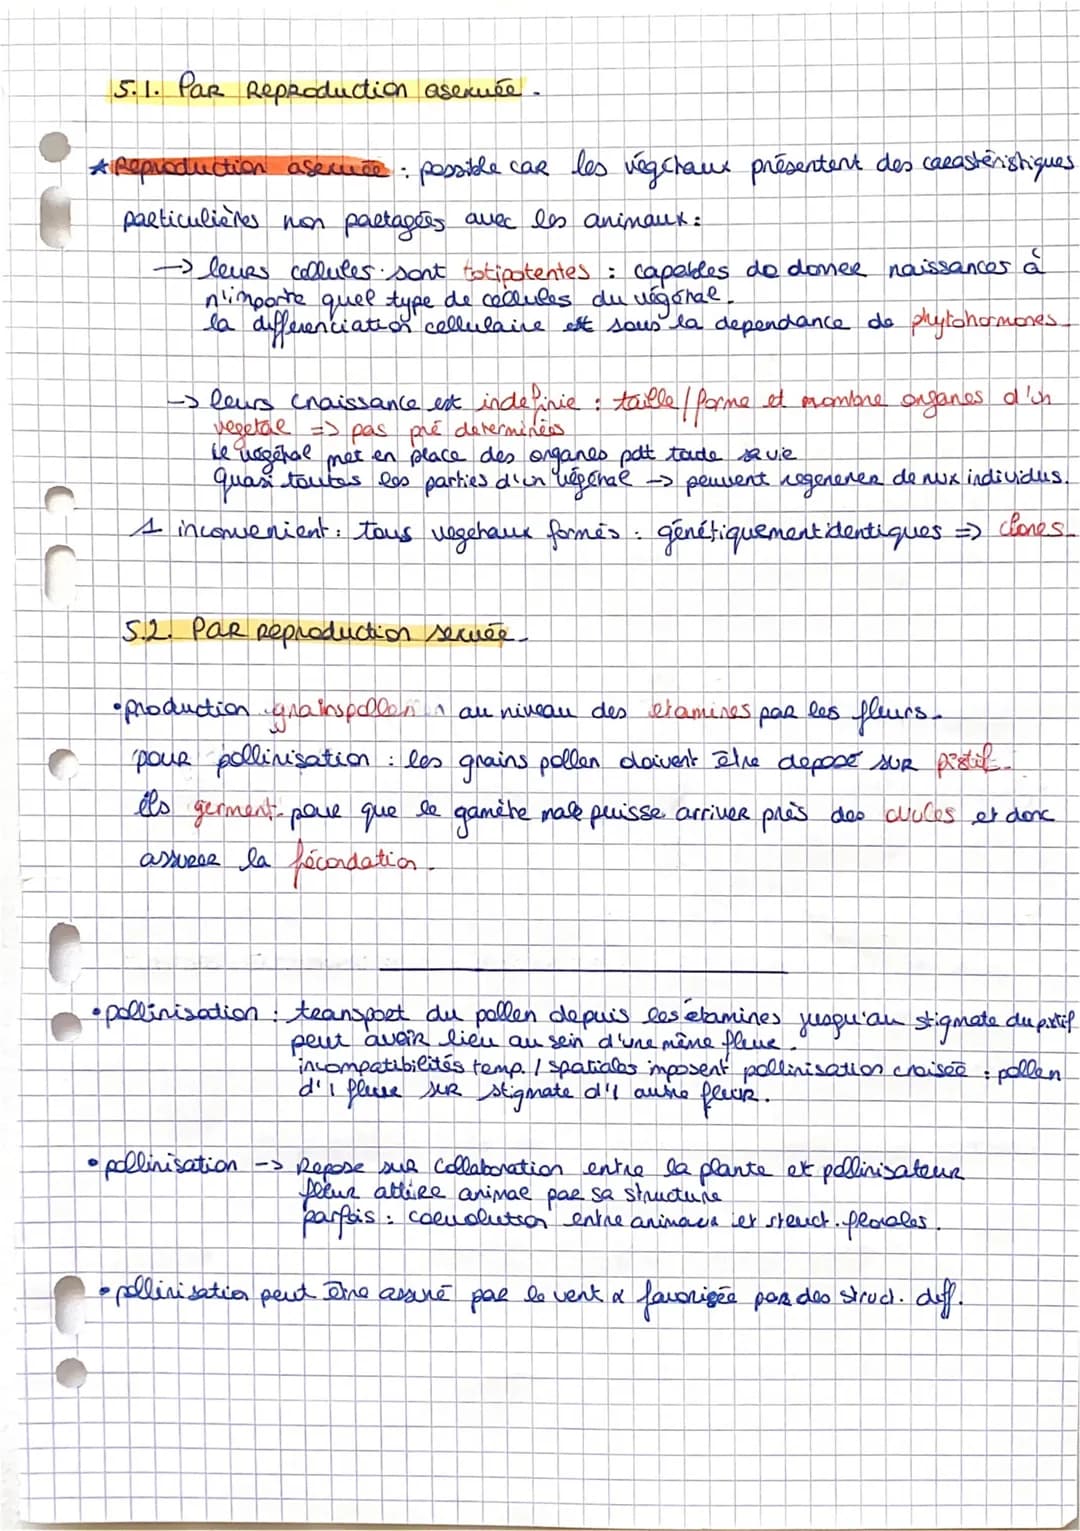 5.1. Par Reproduction asexuée.
* Reproduction asexuée : possible car les végétaux présentent des caractéristiques
particulières non partagées avec les animaux :
-> leurs cellules sont totipotentes : capables de donner naissances à
n'importe quel type de cellules du végétal.
la différenciation cellulaire est sous la dependance de phytohormones
-> leurs croissance est indéfinie : taille / forme et nombre organes d'un
vegetal => pas pré determinées
le végétal met en place des organes pdt toute sa vie
quasi toutes les parties d'un végétal -> peuvent regenerer de nvx individus.
1 inconvenient : tous vegetaux formés : génétiquement identiques => clones
5.2. Par reproduction sexuée.
• production grains pollen au niveau des étamines par les fleurs.
pour pollinisation : les grains pollen doivent être deposé sur pistil.
ils germent pour que le gamète male puisse arriver près des ovules et donc
assurer la fécondation.
• pollinisation : transport du pollen depuis les étamines jusqu'au stigmate du pistil
peut avoir lieu au sein d'une même fleur.
incompatibilités temp. / spatiales imposent pollinisation croisée : pollen
d'1 fleur sur stigmate d'1 autre fleur.
• pollinisation -> Repose sur collaboration entre la plante et pollinisateur
fleur attire animal par sa structure
parfois : coevolution entre animaux et struct. florales.
• pollinisation peut être assuré par le vent & favorisée par des struct. diff.